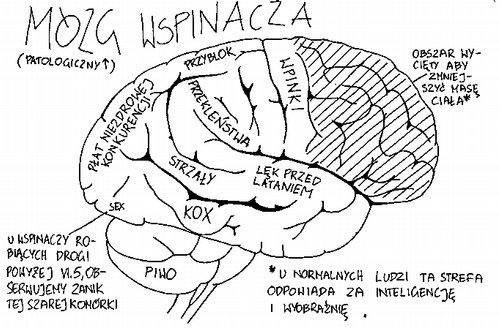 MÓZG WSPINACZA
(PATOLOGICZNY↑)
PRZYBLOK
WPINKI
OBSZAR WY-
CIĘTY ABY
ZMNIEJ-
SZYĆ MASĘ
CIAŁA*
PŁAT NIEZDROWEJ
KONKURENCJI
PRZEKLEŃSTWA
STRZAŁY
LĘK PRZED
LATANIEM
SEX
KOX
PIWO
U WSPINACZY RO-
BIĄCYCH DROGI
POWYŻEJ VI.5, OB-
SERWUJEMY ZANIK
TEJ SZAREJ KOMÓRKI
* U NORMALNYCH LUDZI TA STREFA
ODPOWIADA ZA INTELIGENCJĘ
I WYOBRAŹNIĘ